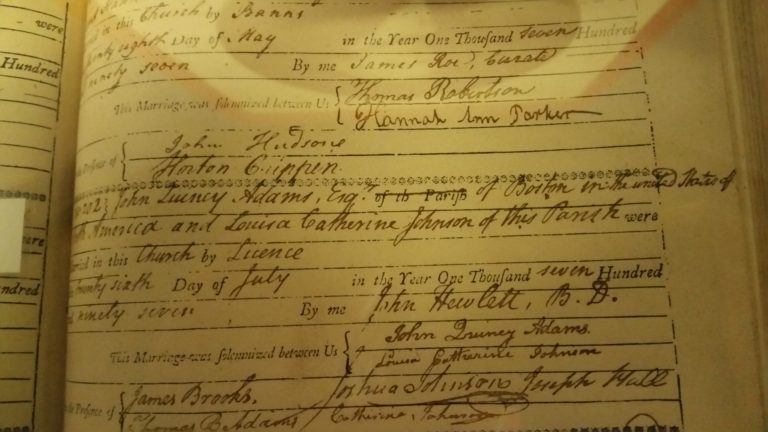 were
Hundred
in this Church by Banns
twenty eighth Day of May in the Year One Thousand seven Hundred
ninety seven By me James Roe, Curate
This Marriage was solemnized between Us { Thomas Robertson
Hannah Ann Parker
the Presence of { John Hudson
Horton Crippen
202 } John Quincy Adams, Esq. of th Parish of Boston in the united States of
America and Louisa Catherine Johnson of this Parish were
in this Church by Licence
twenty sixth Day of July in the Year One Thousand seven Hundred
ninety seven By me John Hewlett, B. D.
This Marriage was solemnized between Us { John Quincy Adams.
Louisa Catherine Johnson
the Presence of { James Brooks. Joshua Johnson Joseph Hall
Thomas B Adams Catherine Johnson
were
ndred